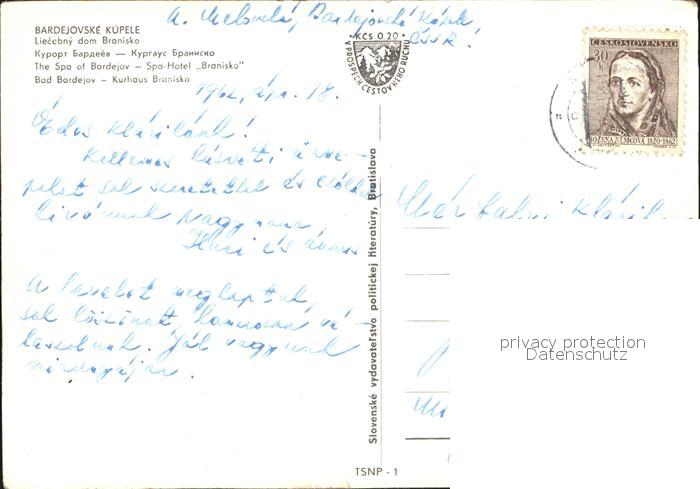 A. Bardejovské Kúpele
ČSSR!
BARDEJOVSKÉ KÚPELE
Liečebný dom Branisko
Курорт Бардеёв — Кургаус Браниско
The Spa of Bardejov – Spa-Hotel „Branisko"
Bad Bardejov – Kurhaus Branisko
KČS 0.20
V PROSPECH CESTOVNÉHO RUCHU
ČESKOSLOVENSKO
30
BOŽENA NĚMCOVÁ 1820-1862
1962, ápr. 18.
Édes Klárikánk!
Kellemes húsvéti ünne-
peket sok szeretettel és csókkal
kívánnak Nagymama
és
A levelet megkaptuk,
sok köszönet, hamarosan vá-
laszolunk. Jól vagyunk
Klári
Slovenské vydavateľstvo politickej literatúry, Bratislava
privacy protection
Datenschutz
TSNP - 1